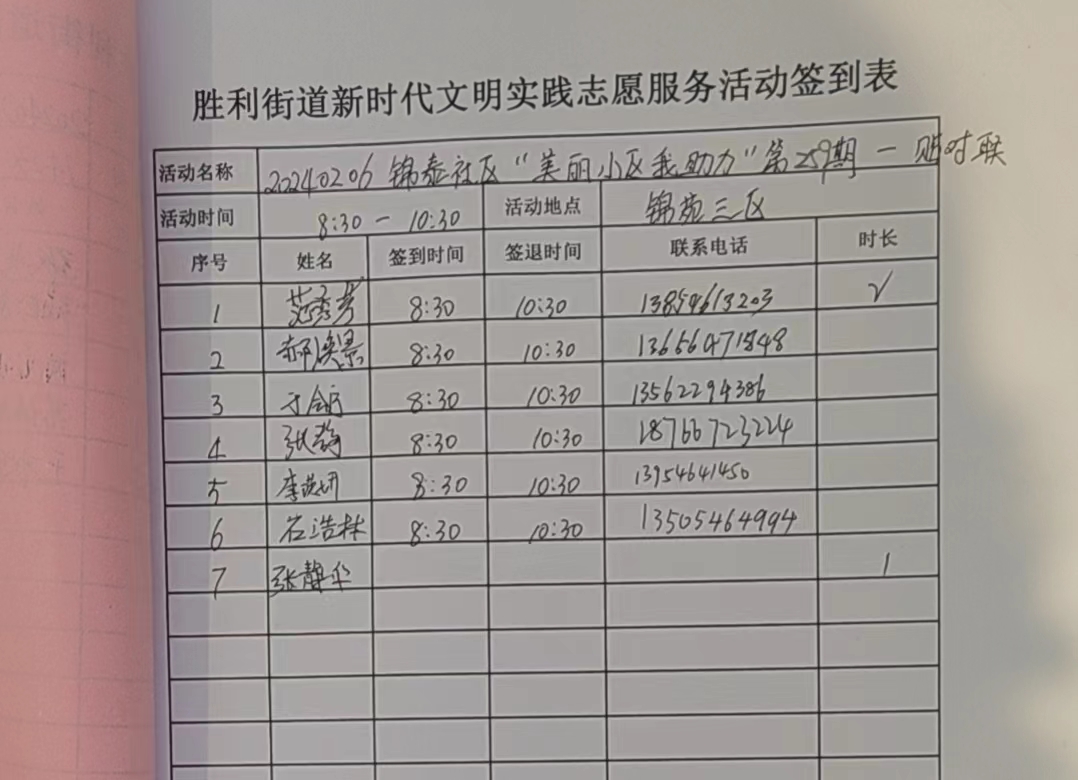 胜利街道新时代文明实践志愿服务活动签到表
活动名称 20240206 锦泰社区“美丽小区我助力”第259期 — 贴对联
活动时间 8:30 — 10:30 活动地点 锦苑三区
序号 姓名 签到时间 签退时间 联系电话 时长
1 范秀芳 8:30 10:30 13854613203 √
2 8:30 10:30 13656471848
3 8:30 10:30 13562294386
4 张 8:30 10:30 18766723224
5 李 8:30 10:30 13954641450
6 石浩林 8:30 10:30 13505464994
7 张静华 1